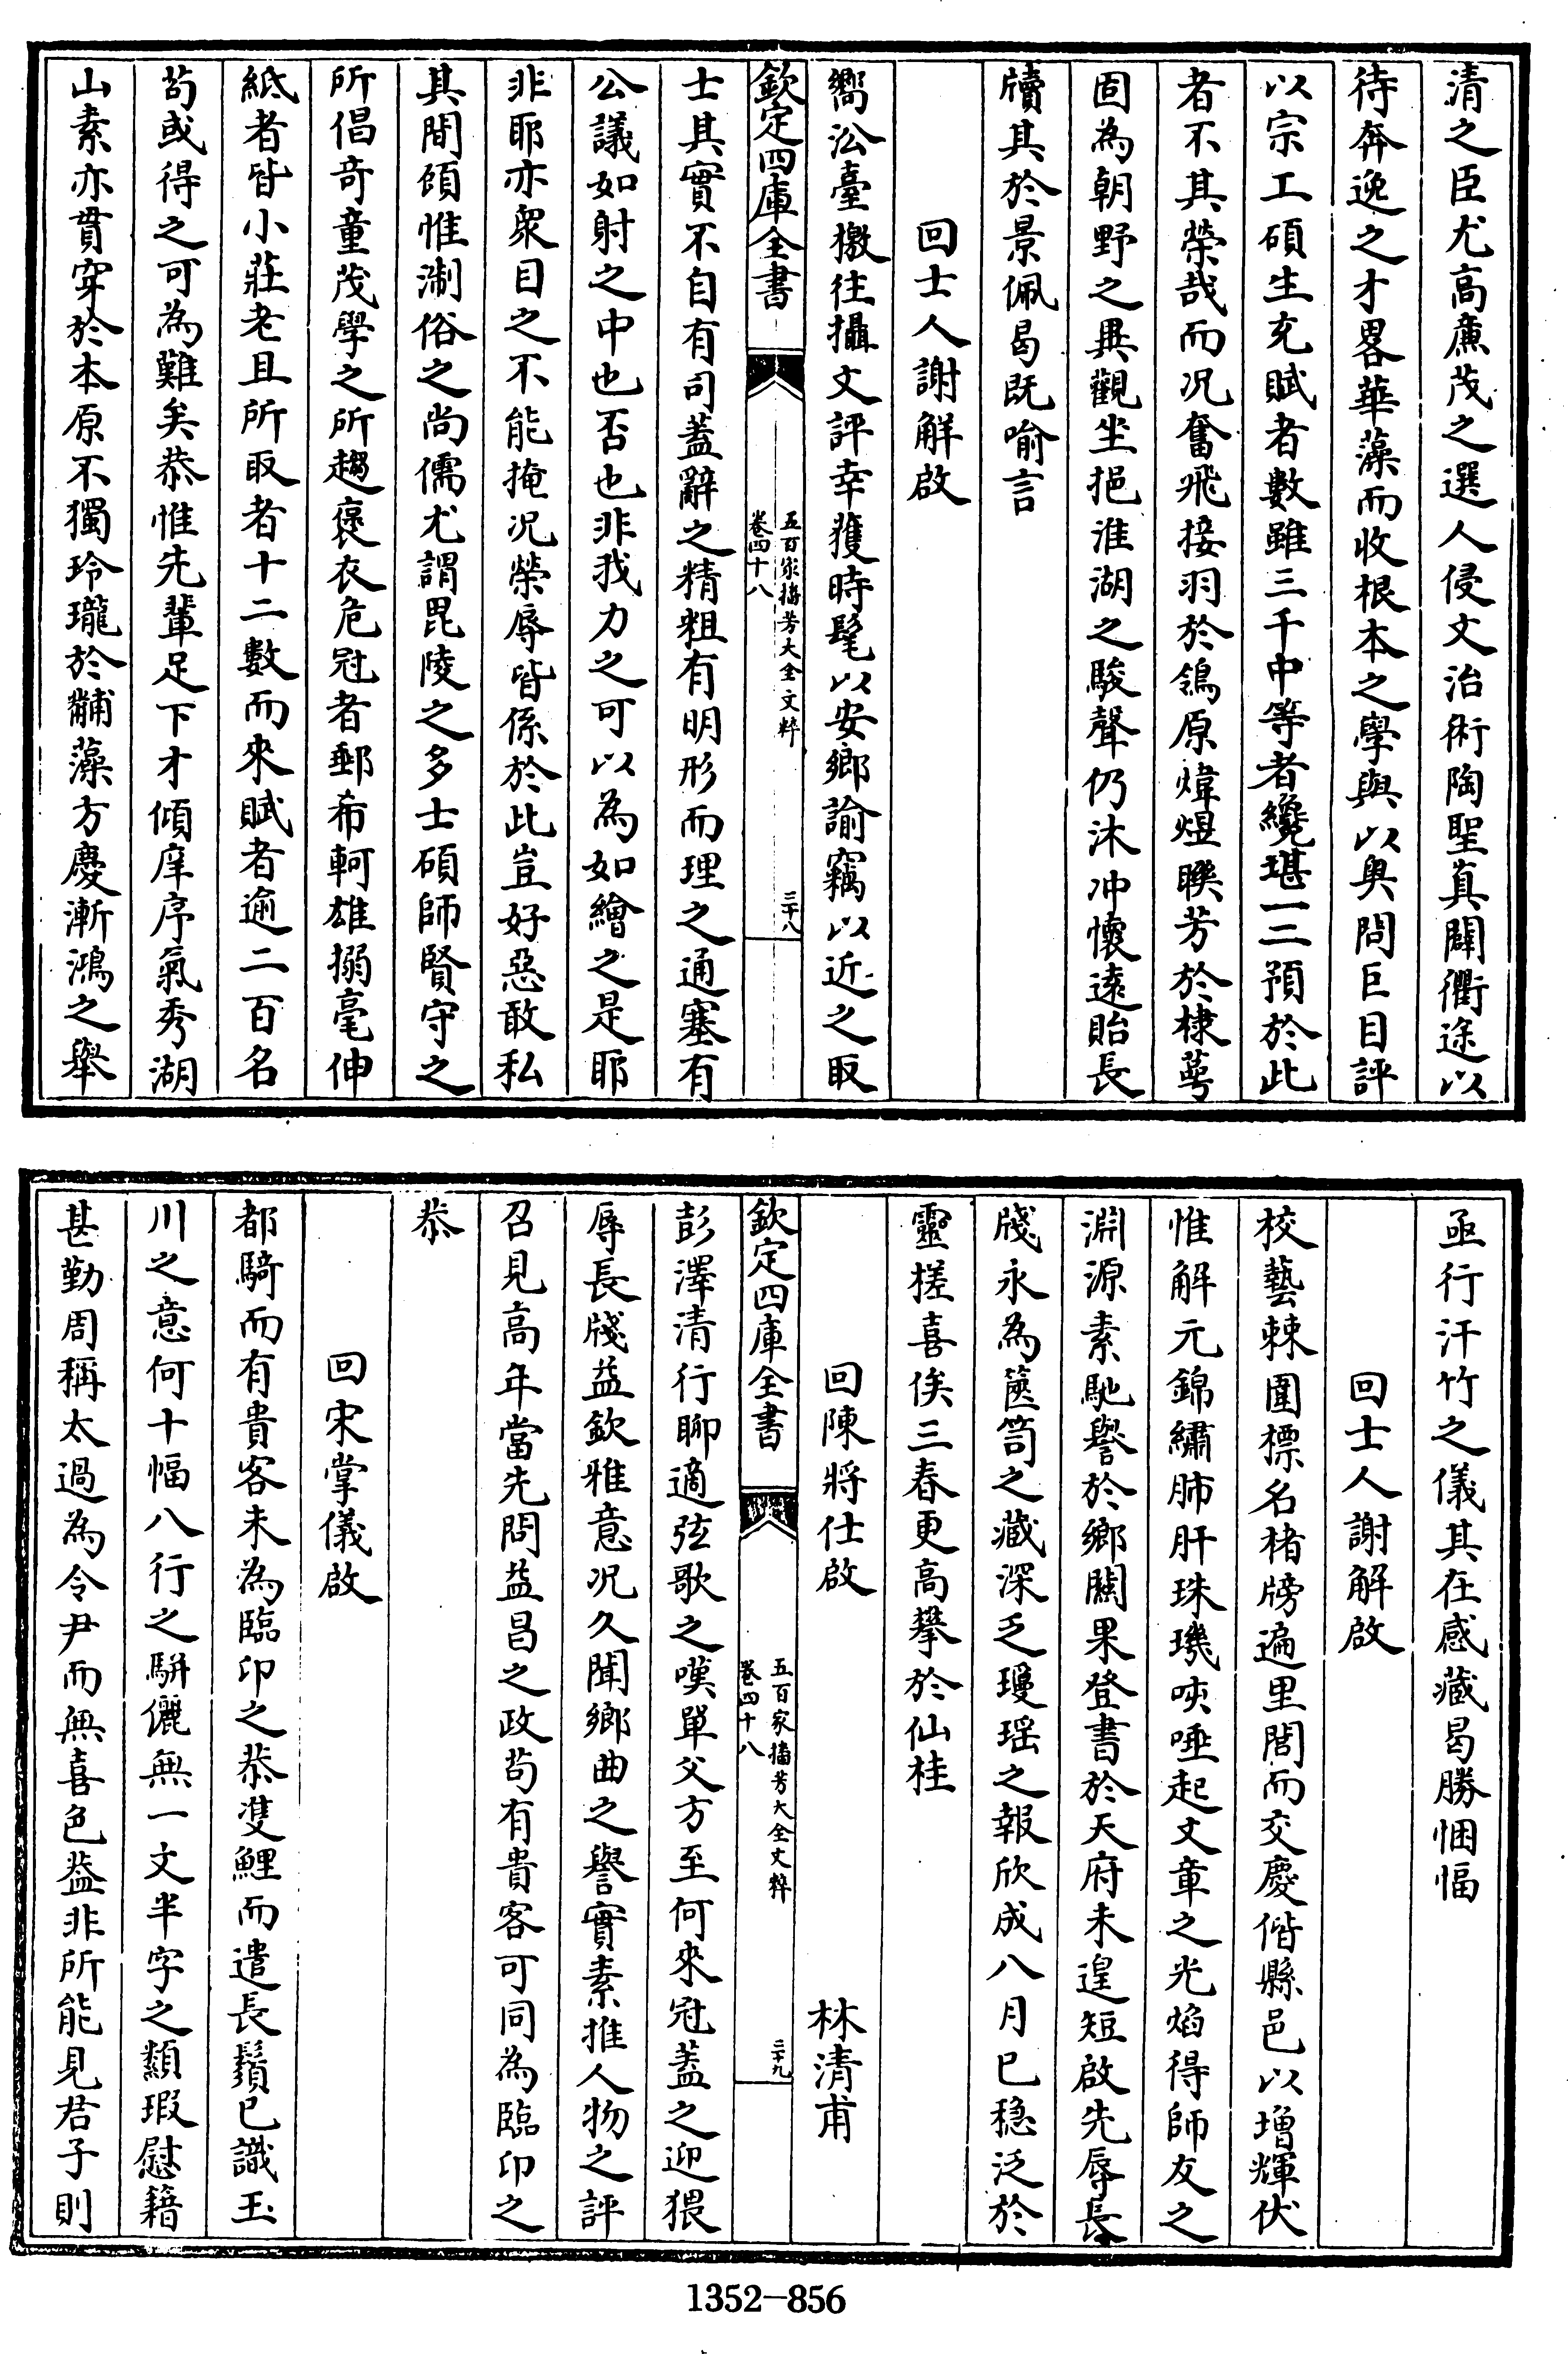 清之臣尤髙廉茂之選人侵文治術陶聖真闢衢途以
待奔逸之才畧華藻而收根本之學與以奥問巨目評
以宗工碩生充賦者數雖三千中等者纔堪一二預於此
者不其榮哉而况奮飛接羽於鴒原煒煜聨芳於棣萼
固為朝野之異觀坐挹淮湖之駿聲仍沐冲懷逺貽長
牘其於景佩曷既喻言
回士人謝解啟
嚮㳂臺檄往攝文評幸獲時髦以安鄉諭竊以近之取
欽定四庫全書
五百家播芳大全文粹
卷四十八
三十八
士其實不自有司葢辭之精粗有明形而理之通塞有
公議如射之中也否也非我力之可以為如繪之是耶
非耶亦衆目之不能掩况榮辱皆係於此豈好惡敢私
其間頋惟淛俗之尚儒尤謂毘陵之多士碩師賢守之
所倡竒童茂學之所趨褒衣危冠者郵希軻雄搦毫伸
紙者皆小莊老且所取者十二數而來賦者逾二百名
茍或得之可為難矣恭惟先輩足下才傾庠序氣秀湖
山素亦貫穿於本原不獨玲瓏於黼藻方慶漸鴻之舉
亟行汗竹之儀其在感藏曷勝悃愊
回士人謝解啟
校藝棘圍標名楮牓遍里閭而交慶偕縣邑以增輝伏
惟解元錦繡肺肝珠璣咳唾起文章之光焰得師友之
淵源素馳譽於鄉闗果登書於天府未遑短啟先辱長
牋永為篋笥之藏深乏瓊瑶之報欣成八月已穏泛於
靈槎喜俟三春更髙攀於仙桂
回陳將仕啟
林清甫
欽定四庫全書
五百家播芳大全文粹
卷四十八
三十九
彭澤清行聊適弦歌之嘆單父方至何來冠葢之迎猥
辱長牋益欽雅意况久聞鄉曲之譽實素推人物之評
召見髙年當先問益昌之政茍有貴客可同為臨卭之
恭
回宋掌儀啟
都騎而有貴客未為臨卭之恭䨇鯉而遣長鬚已識玉
川之意何十幅八行之駢儷無一文半字之纇瑕慰籍
甚勤周稱太過為令尹而無喜色葢非所能見君子則
1352—856